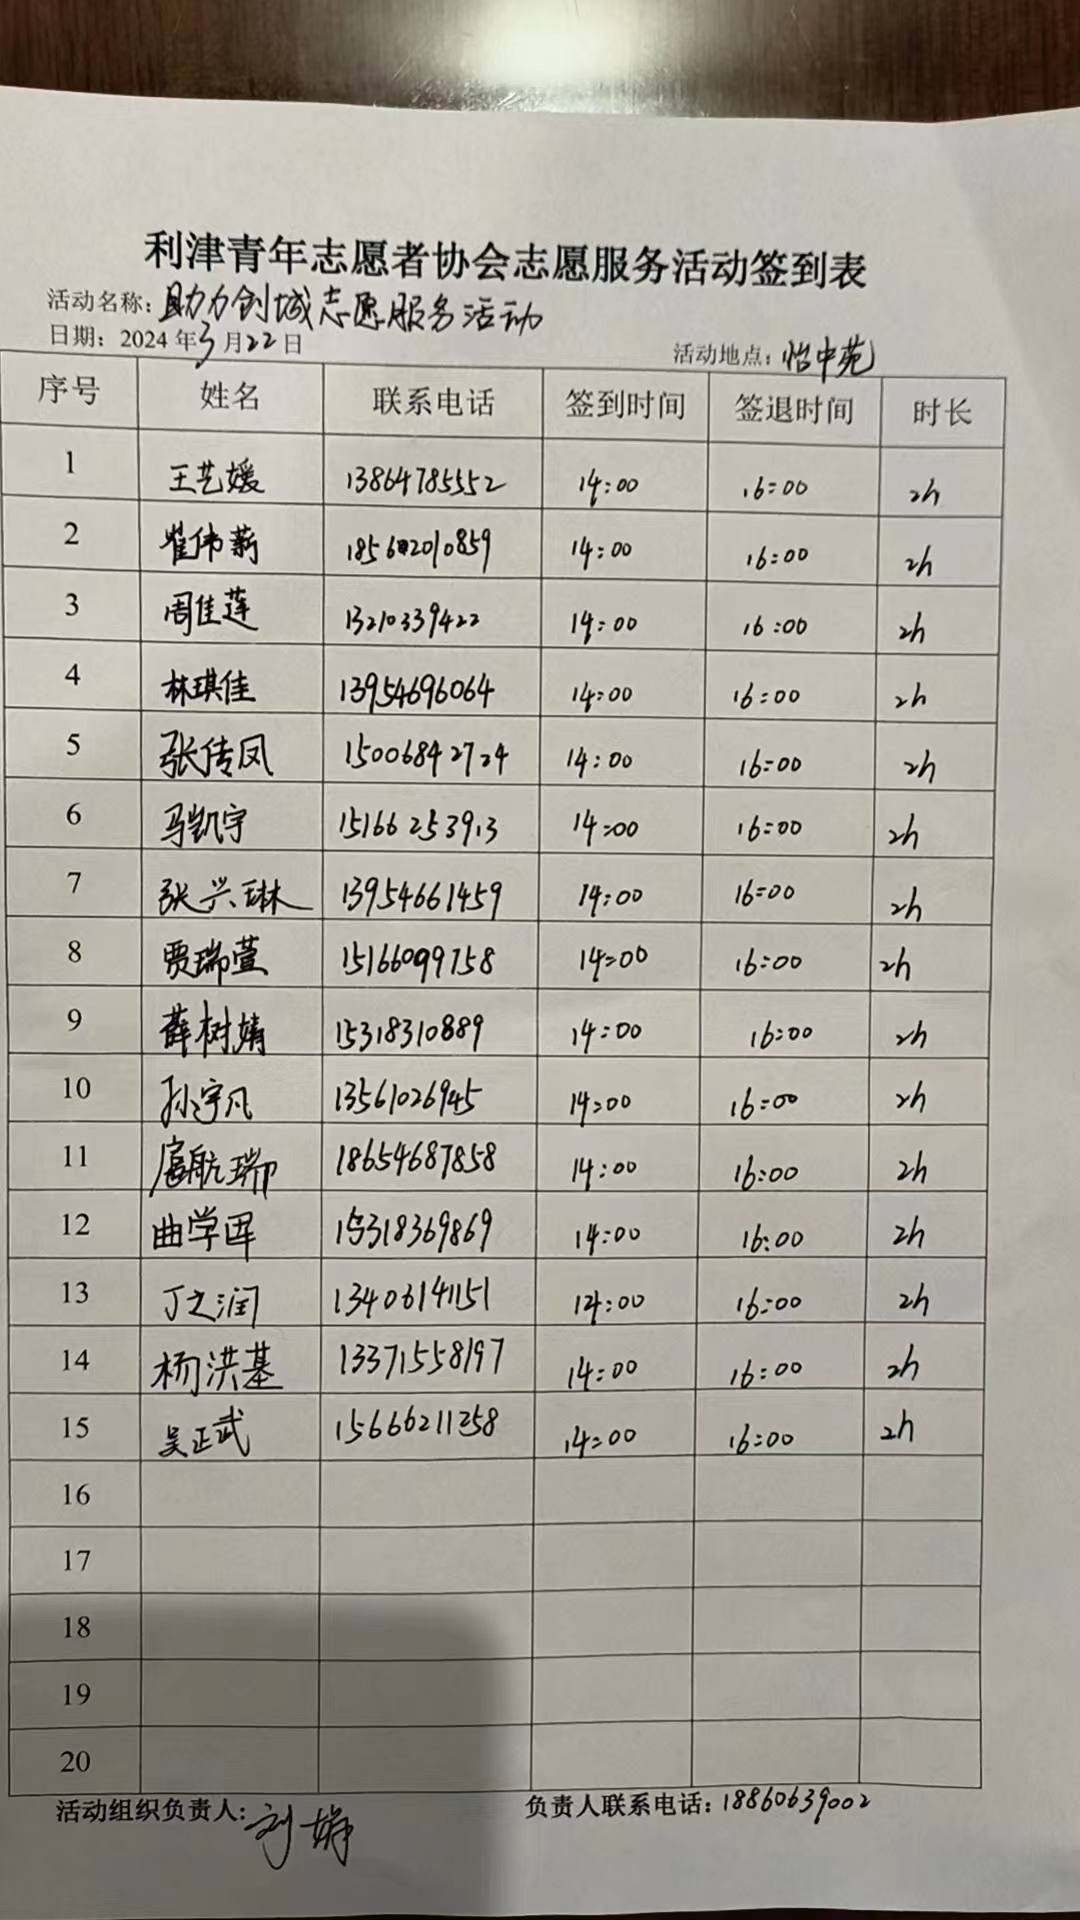 利津青年志愿者协会志愿服务活动签到表
活动名称：助力创城志愿服务活动
日期：2024年3月22日 活动地点：怡中苑
序号 姓名 联系电话 签到时间 签退时间 时长
1 王艺媛 13864785552 14:00 16:00 2h
2 崔伟薪 18562010859 14:00 16:00 2h
3 周佳莲 13210339422 14:00 16:00 2h
4 林琪佳 13954696064 14:00 16:00 2h
5 张传凤 15006842724 14:00 16:00 2h
6 马凯宇 15166253913 14:00 16:00 2h
7 张兴琳 13954661459 14:00 16:00 2h
8 贾瑞萱 15166099758 14:00 16:00 2h
9 薛树婧 15318310889 14:00 16:00 2h
10 孙宇凡 13561026945 14:00 16:00 2h
11 扈航瑞 18654687858 14:00 16:00 2h
12 曲学军 15318369869 14:00 16:00 2h
13 丁之润 13406141151 14:00 16:00 2h
14 杨洪基 13371558197 14:00 16:00 2h
15 吴正武 15666211358 14:00 16:00 2h
16
17
18
19
20
活动组织负责人：刘娟 负责人联系电话：18860639002